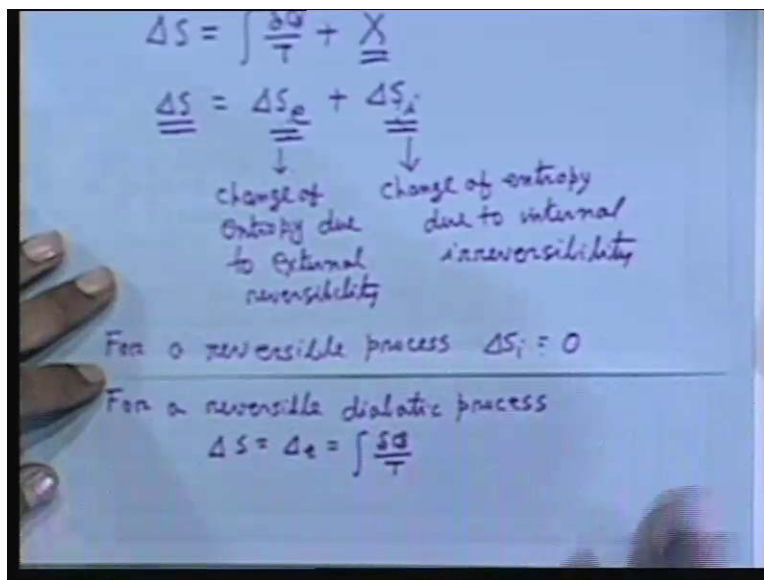 ΔS = ∫ δQ/T + X
ΔS = ΔSe + ΔSi
change of entropy due to external reversibility
change of entropy due to internal irreversibility
For a reversible process ΔSi = 0
For a reversible dialatic process
ΔS = Δe = ∫ δQ/T